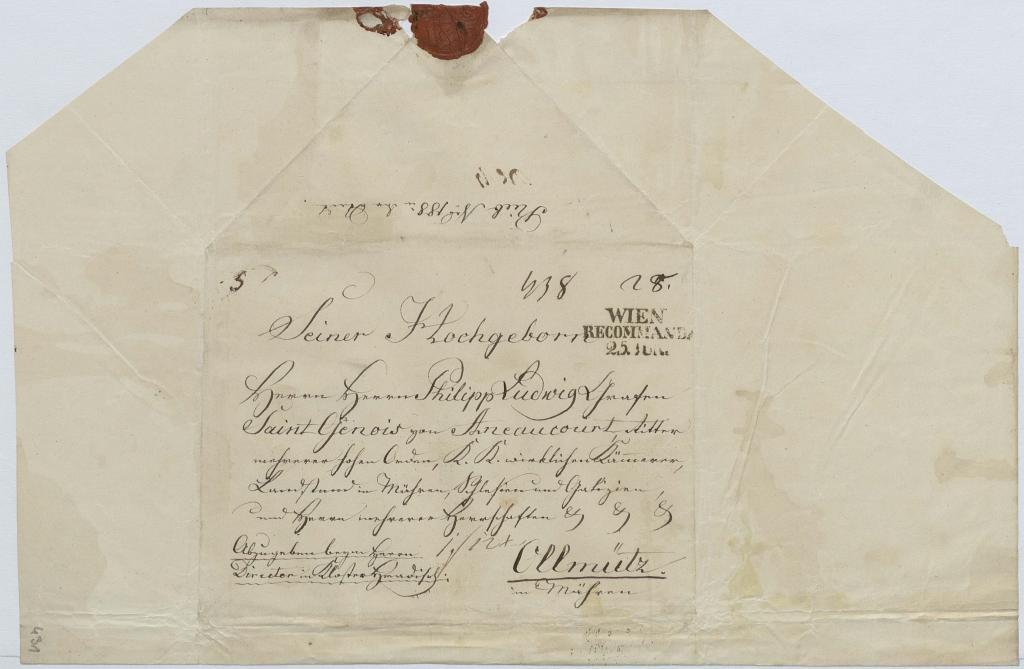 5
438 28.
Seiner Hochgeborn
WIEN
RECOMMAND
25. JUN.
Herrn Herrn Philipp Ludwig Grafen
Saint Genois von Aneaucourt, Ritter
mehrerer hohen Orden, K. K. wirklichen Kämmerer,
Landstand in Mähren, Schlesien und Galizien,
und Herrn mehrerer Herrschaften & & &
Abzugeben beym Herrn
Director in Kloster Hradisch.
Ollmütz.
in Mähren
431